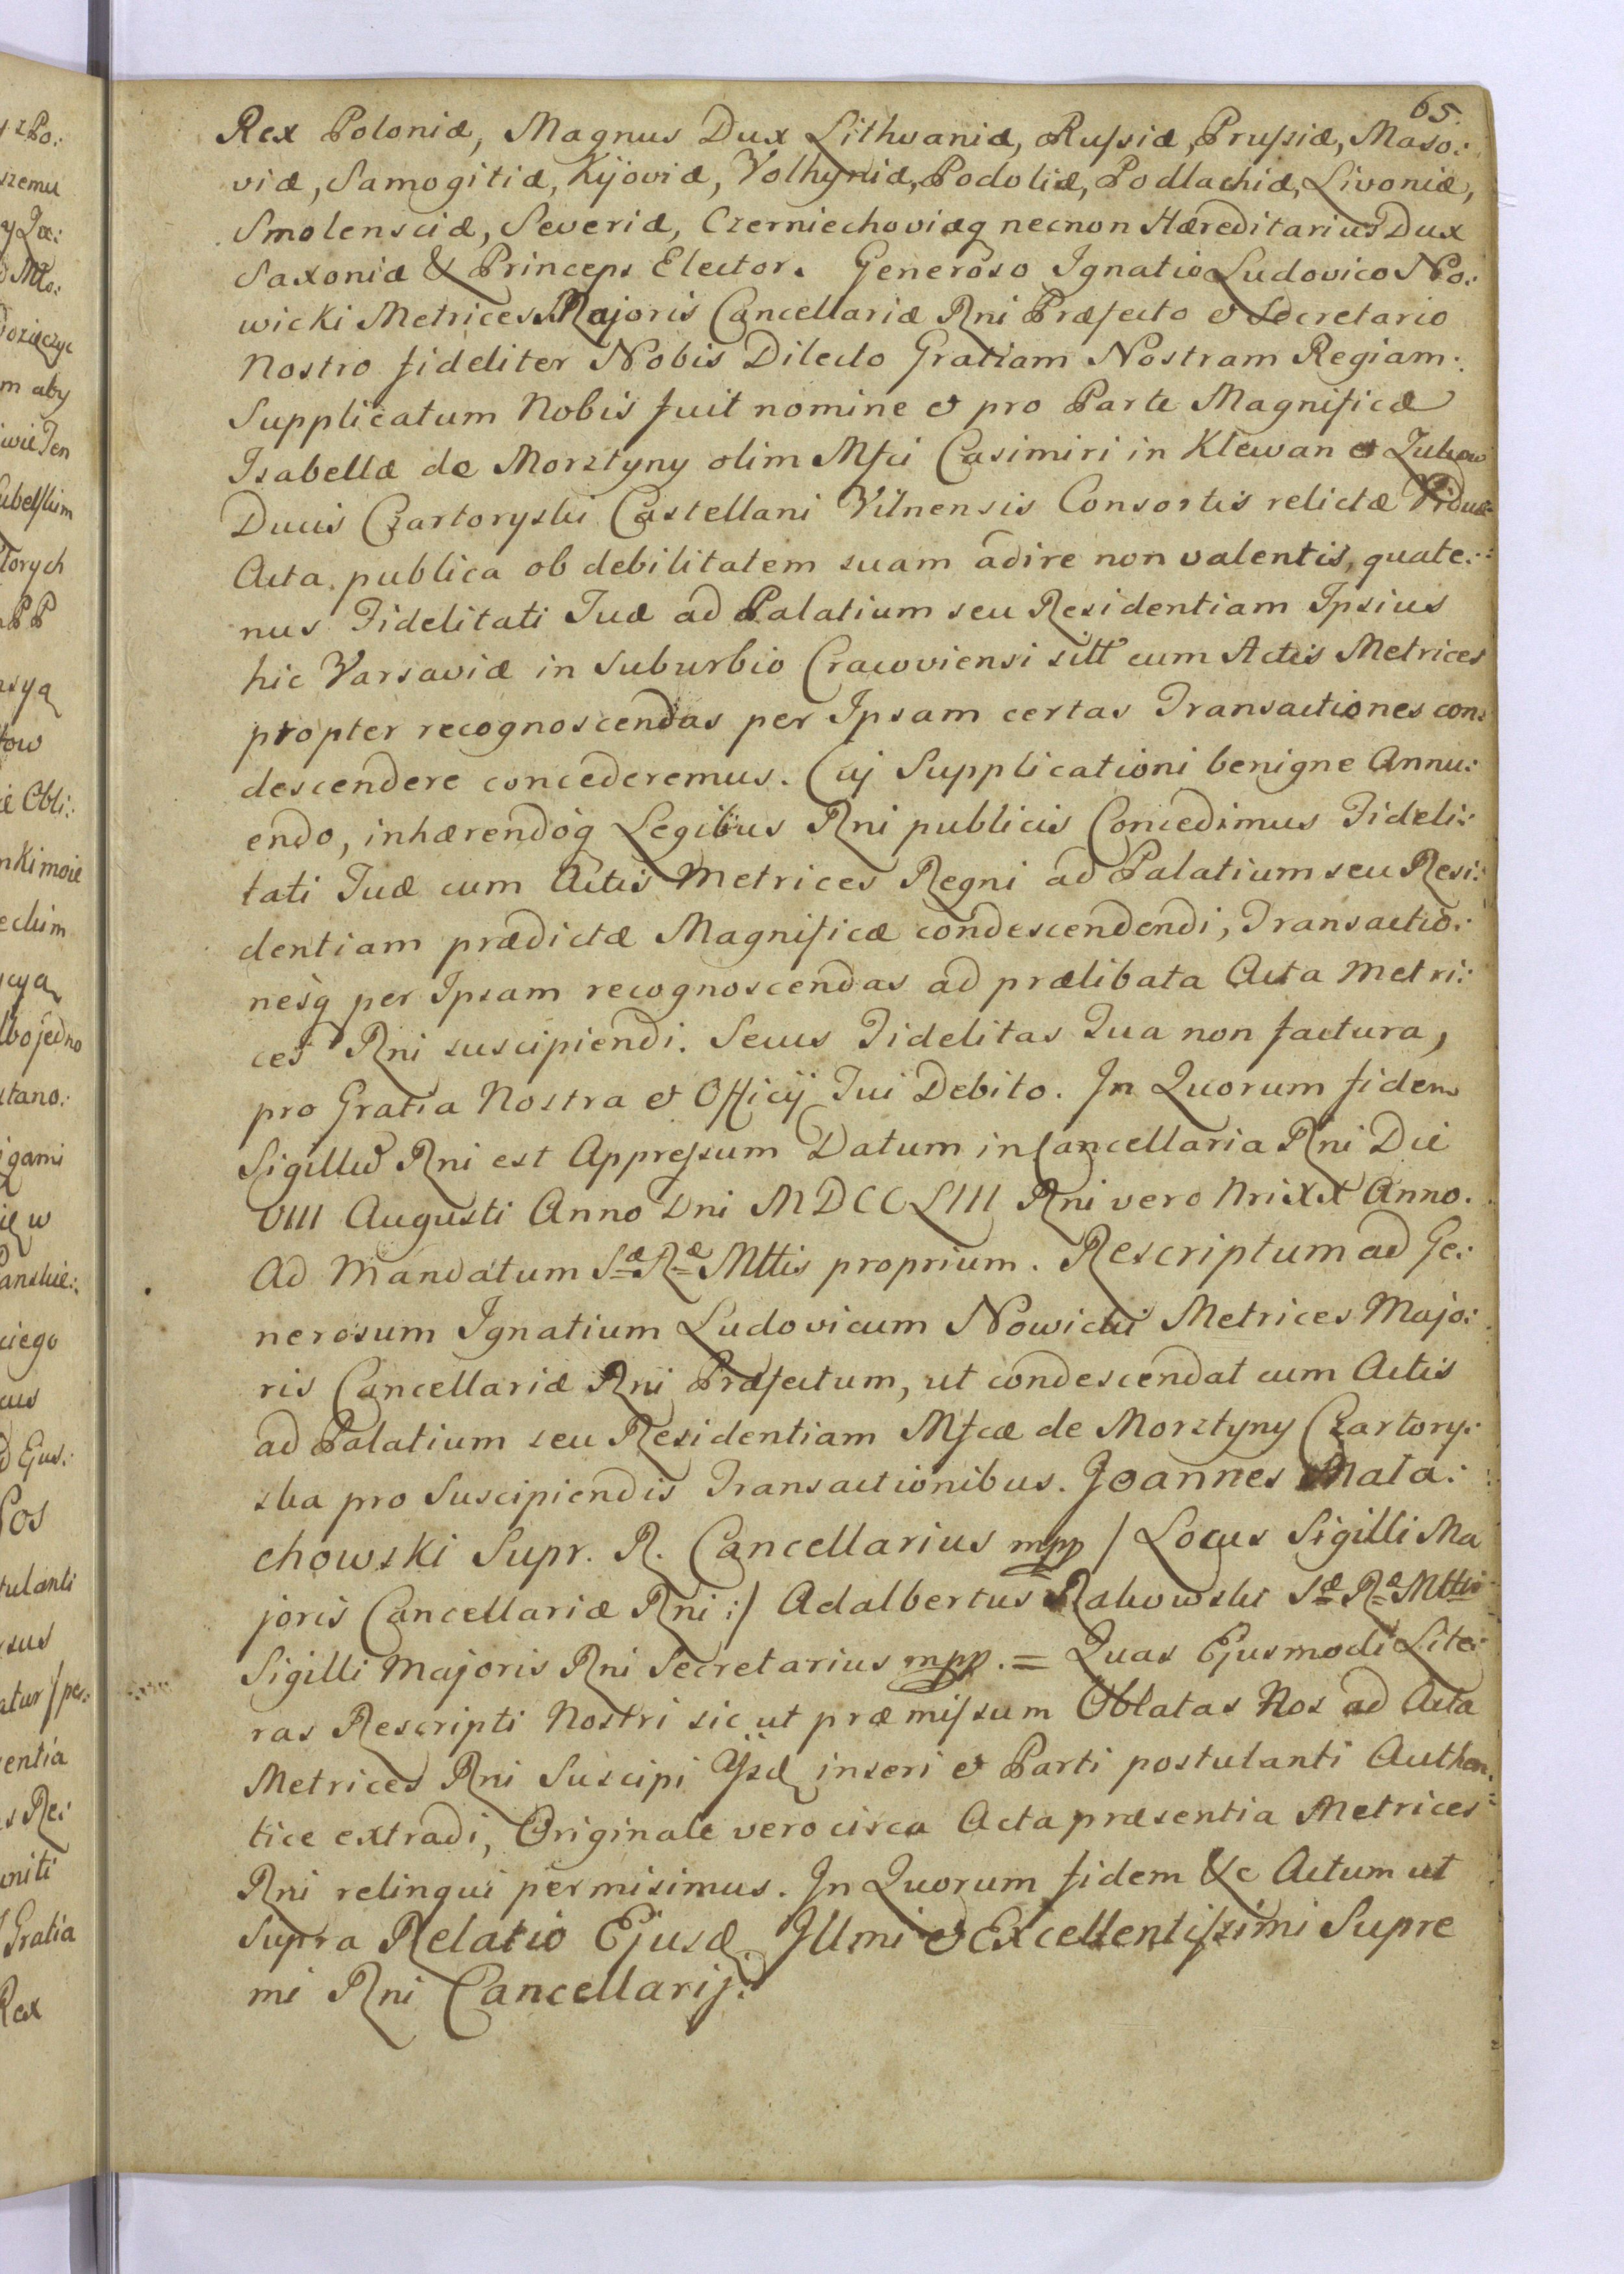 65.
Rex Poloniæ, Magnus Dux Lithvaniæ, Rufsiæ, Prufsiæ, Maso:
viæ, Samogitiæ, Kijoviæ, Volhyniæ, Podoliæ, Podlachiæ, Livoniæ,
Smolensciæ, Severiæ, Czerniechoviæq necnon Hæreditarius Dux
Saxoniæ & Princeps Elector. Generoso Ignatio Ludovico No:
wicki Metrices Majoris Cancellariæ Rni Præfecto et Secretario
Nostro fideliter Nobis Dilecto Gratiam Nostram Regiam.
Supplicatum Nobis fuit nomine et pro Parte Magnificæ
Isabellæ de Morsztyny olim Mfci Casimiri in Klewan et Zukow
Ducis Czartoryski Castellani Vilnensis Consortis relictæ Viduæ
Acta publica ob debilitatem suam adire non valentis, quate:
nus Fidelitati Tuæ ad Palatium seu Residentiam Ipsius
hic Varsaviæ in Suburbio Cracoviensi sitt cum Actis Metrices
propter recognoscendas per Ipsam certas Transactiones con:
descendere concederemus. Cuj Supplicationi benigne Annu:
endo, inhærendoq Legibus Rni publicis Concedimus Fideli:
tati Tuæ cum Actis Metrices Regni ad Palatium seu Resi:
dentiam prædictæ Magnificæ condescendendi, Transactio:
nesq per Ipsam recognoscendas ad prælibata Acta Metri:
ces Rni suscipiendi. Secus Fidelitas Tua non factura,
pro Gratia Nostra et Officij Tui Debito. In Quorum fidem
Sigillũ Rni est Apprefsum Datum in Cancellaria Rni Die
VIII Augusti Anno Dni MDCCLIII Rni vero Nri XX Anno.
Ad Mandatum Sæ Ræ Mttis proprium. Rescriptum ad Ge:
nerosum Ignatium Ludovicum Nowicki Metrices Majo:
ris Cancellariæ Rni Præfectum, ut condescendat cum Actis
ad Palatium seu Residentiam Mfcæ de Morsztyny Czartory:
ska pro Suscipiendis Transactionibus. Joannes Mała:
chowski Supr. R. Cancellarius mpp / Locus Sigilli Ma
joris Cancellariæ Rni :/ Adalbertus Rakowski Sæ Ræ Mttis
Sigilli Majoris Rni Secretarius mpp. = Quas Ejusmodi Lite:
ras Rescripti Nostri sic ut præmifsum Oblatas Nos ad Acta
Metrices Rni Suscipi Ijsd inseri et Parti postulanti Authen:
tice extradi, Originale vero circa Acta præsentia Metrices
Rni relinqui permisimus. In Quorum fidem &c Actum ut
Supra Relatio Ejusd Illmi et Excellentifsimi Supre
mi Rni Cancellarij.